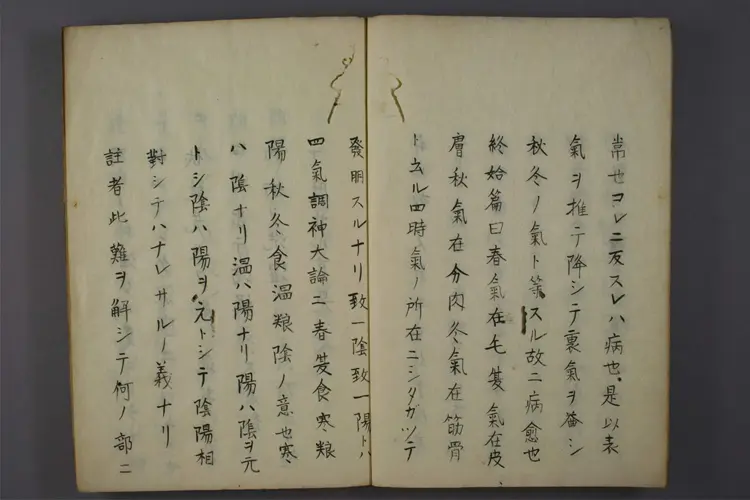 常也コレニ反スレハ病也是以表
氣ヲ推テ降シテ裏氣ヲ審シ
秋冬ノ氣ト等スル故ニ病愈也
終始篇曰春氣在毛夏氣在皮
膚秋氣在分肉冬氣在筋骨
ト云ル四時氣ノ所在ニシタガツテ
發明スルナリ致一陰致一陽トハ
四氣調神大論ニ春夏食寒粮
陽秋冬食温粮陰ノ意也寒
ハ陰ナリ温ハ陽ナリ陽ハ陰ヲ元
トシ陰ハ陽ヲ元トシテ陰陽相
對シテハナレサルノ義ナリ
註者此難ヲ解シテ何ノ部ニ